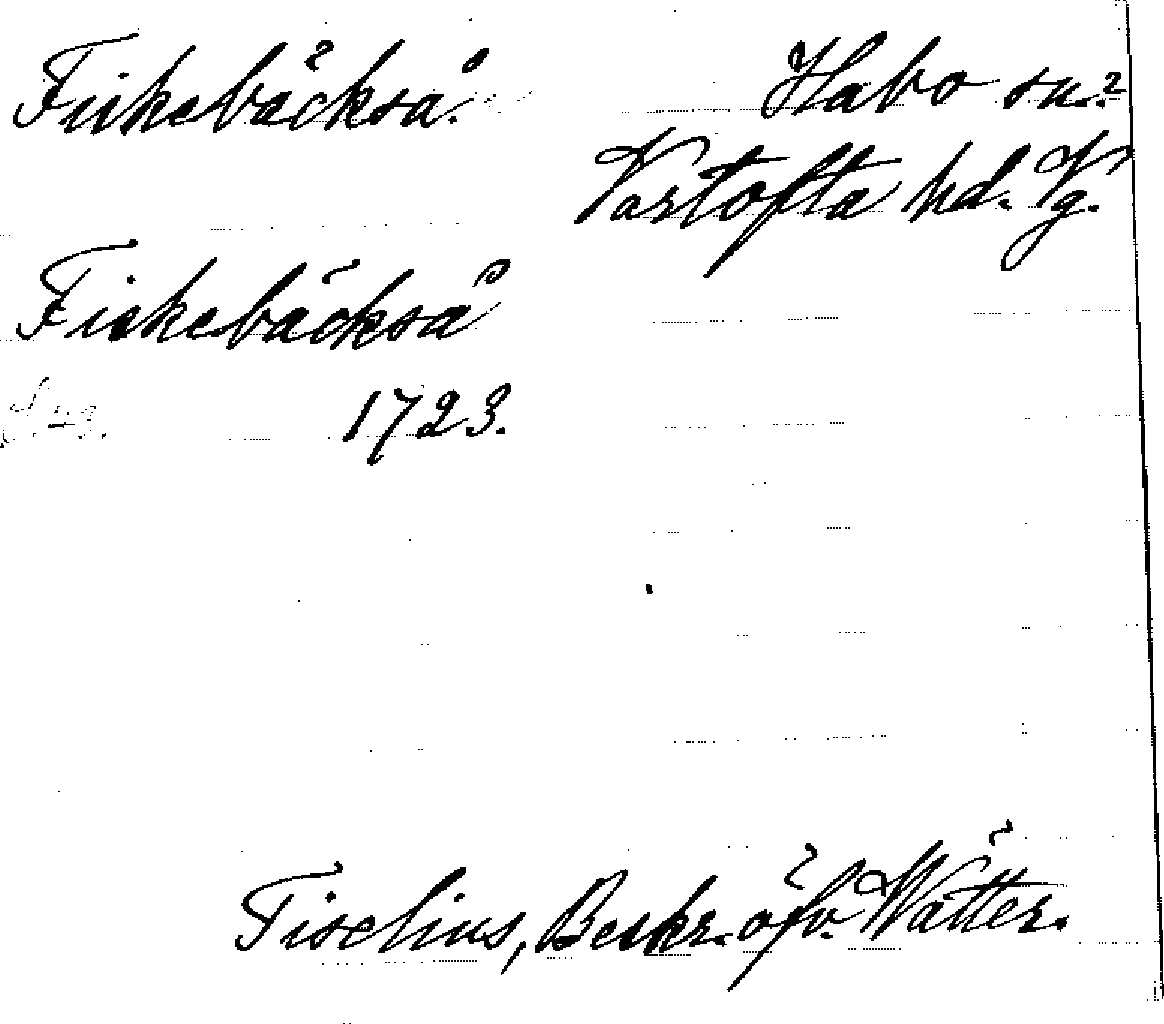 Fiskebäckså.
Habo sn?
Vartofta hd. Vg.
Fiskebäckså
1723.
Tiselius, Beskr. öfv. Wätter.